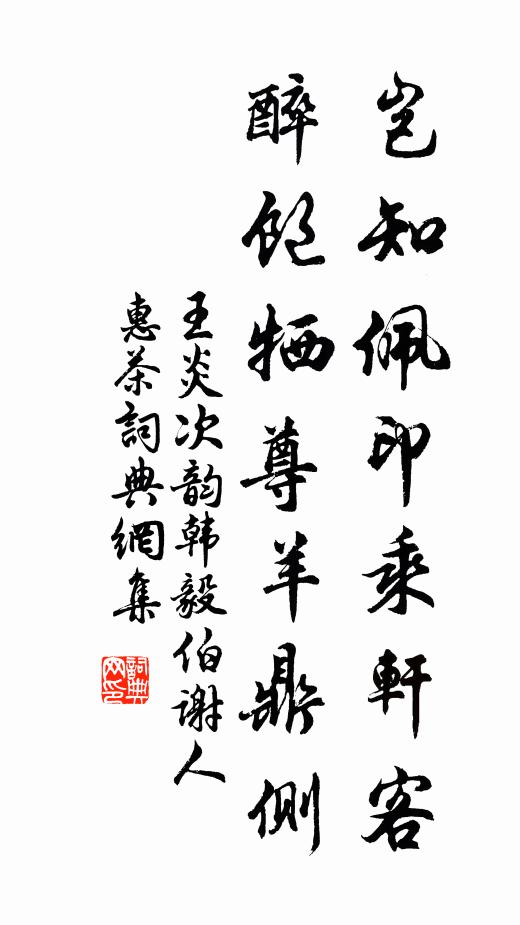 豈知佩印乘軒客
醉飽犧尊羊鼎側
王炎次韵韩毅伯谢人
惠茶詞典網集
詞典網印